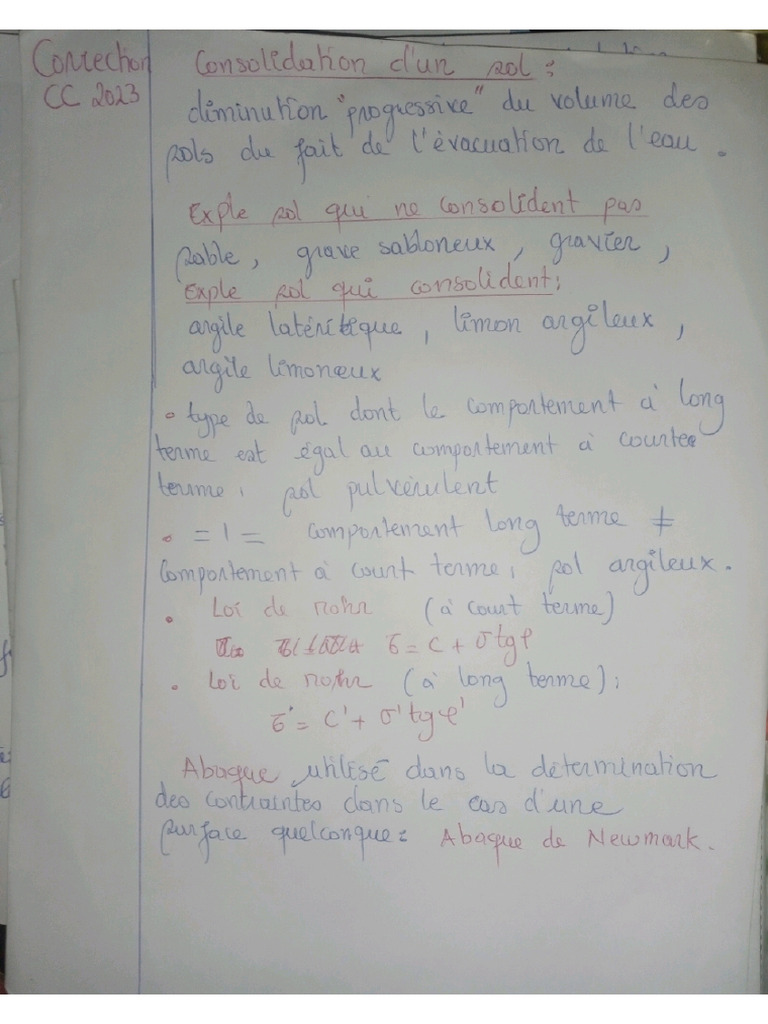 Correction
CC 2023
Consolidation d'un sol :
diminution "progressive" du volume des
sols du fait de l'évacuation de l'eau .
Exple sol qui ne consolident pas
sable, grave sabloneux, gravier,
Exple sol qui consolident :
argile latéritique, limon argileux,
argile limoneux
• type de sol dont le comportement à long
terme est égal au comportement à courtee
terme : sol pulvérulent
• = 1 = comportement long terme ≠
comportement à court terme : sol argileux .
• Loi de mohr (à court terme)
τ = c + σ tg φ
• Loi de mohr (à long terme) :
τ' = c' + σ' tg φ'
Abaque utilisé dans la détermination
des contraintes dans le cas d'une
surface quelconque : Abaque de Newmark .